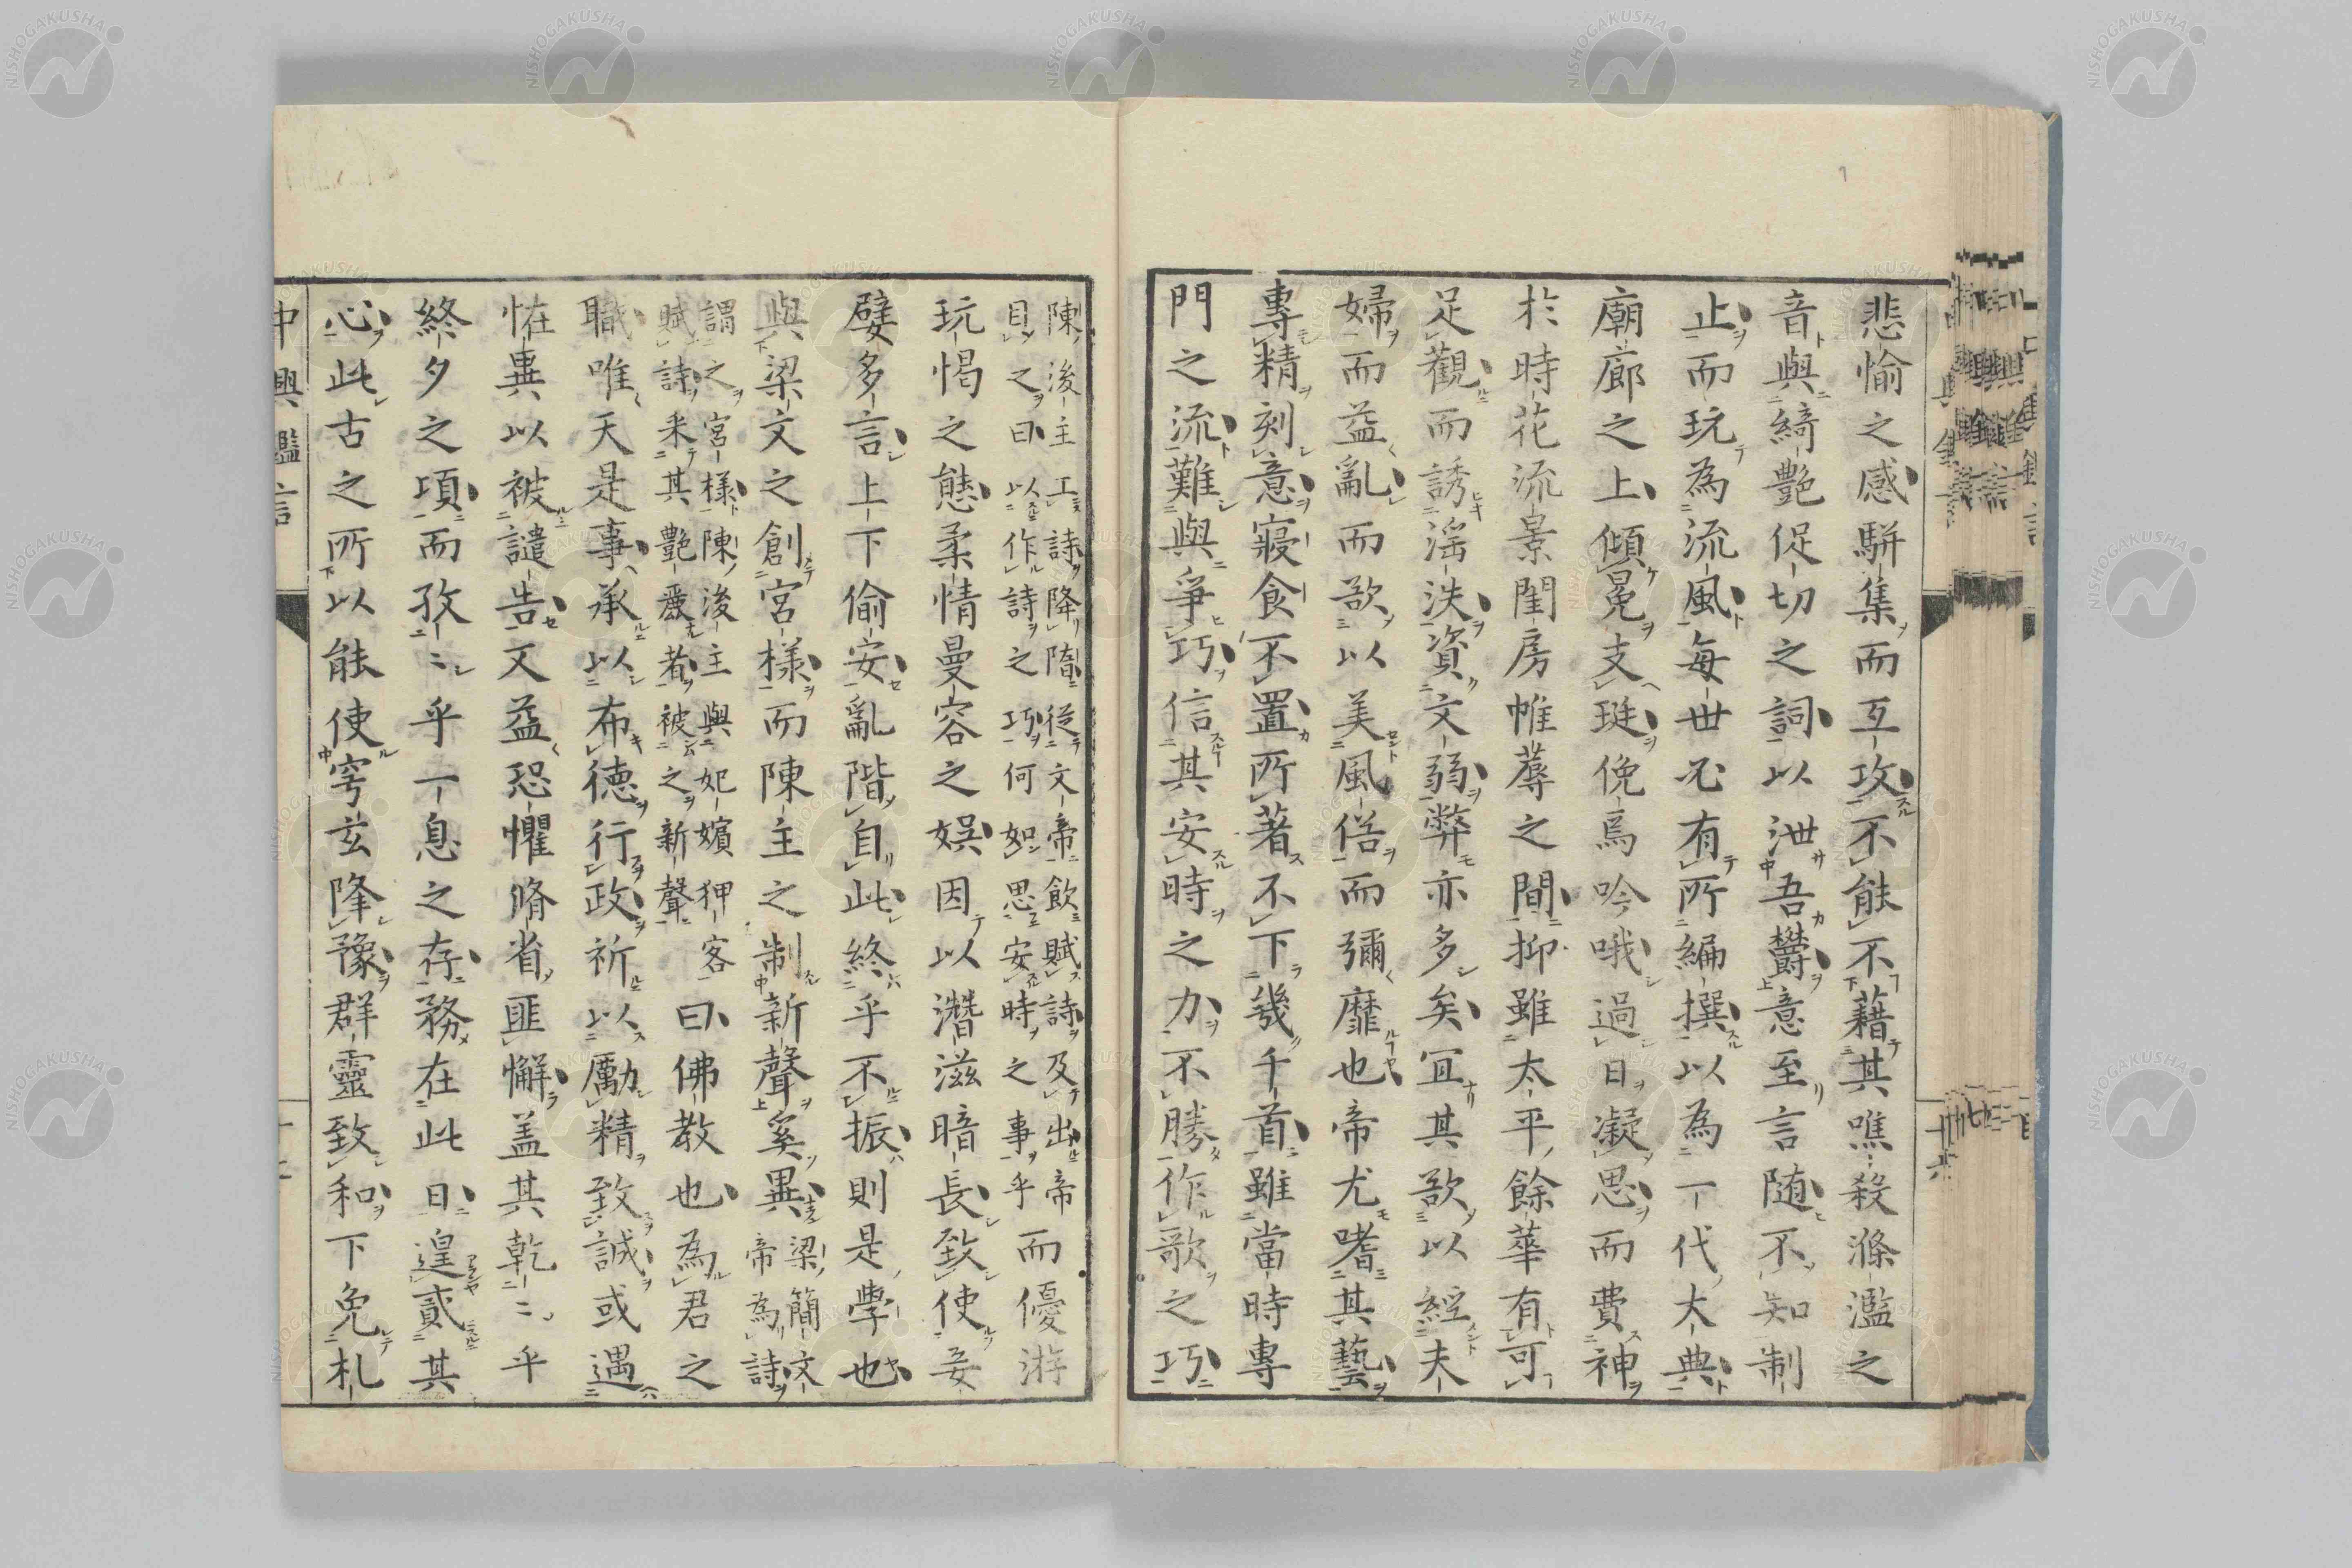 悲愉之感駢集而互攻不能不藉其噍殺滌濫之
音與綺艶促切之詞以泄吾欝意至言随不知制
止而玩為流風每世必有所編撰以為一代大典
廟廊之上傾冕支珽俛焉吟哦過日凝思而費神
於時花流景閨房帷蓐之間抑雖太平餘華有可
足觀而誘淫泆資文弱弊亦多矣冝其欲以經夫
婦而益亂而欲以美風俗而彌靡也帝尤嗜其藝
專精刻意寢食不置所著不下幾千首雖當時專
門之流難與爭巧信其安時之力不勝作歌之巧
陳後主工詩降隋從文帝飲賦詩及出帝
目之曰以作詩之巧何如思安時之事乎
而優游
玩愒之態柔情曼容之娯因以潛滋暗長致使妾
嬖多言上下偷安亂階自此終乎不振則是學也
與梁文之創宮様而陳主之制新聲奚異
梁簡文
帝為詩
謂之宮様陳後主與妃嬪狎客
賦詩釆其艶麗者被之新聲
曰佛教也為君之
職唯天是事承以布德行政祈以勵精致誠或遇
恠異以被譴告文益恐懼脩省匪懈盖其乾〻乎
終夕之項而孜〻乎一息之存務在此日遑貳其
心此古之所以能使穹玄降豫群靈致和下免札
中興鑑言